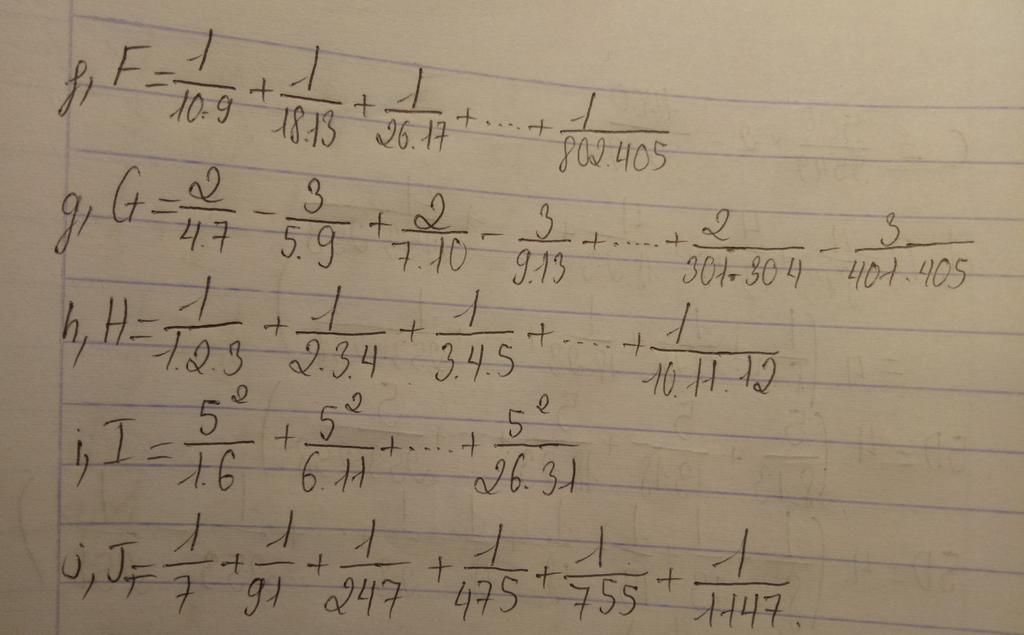 f, F = 1/10.9 + 1/18.13 + 1/26.17 + .... + 1/802.405
g, G = 2/4.7 - 3/5.9 + 2/7.10 - 3/9.13 + ..... + 2/301.304 - 3/401.405
h, H = 1/1.2.3 + 1/2.3.4 + 1/3.4.5 + ..... + 1/10.11.12
i, I = 5²/1.6 + 5²/6.11 + ..... + 5²/26.31
j, J = 1/7 + 1/91 + 1/247 + 1/475 + 1/755 + 1/1147.